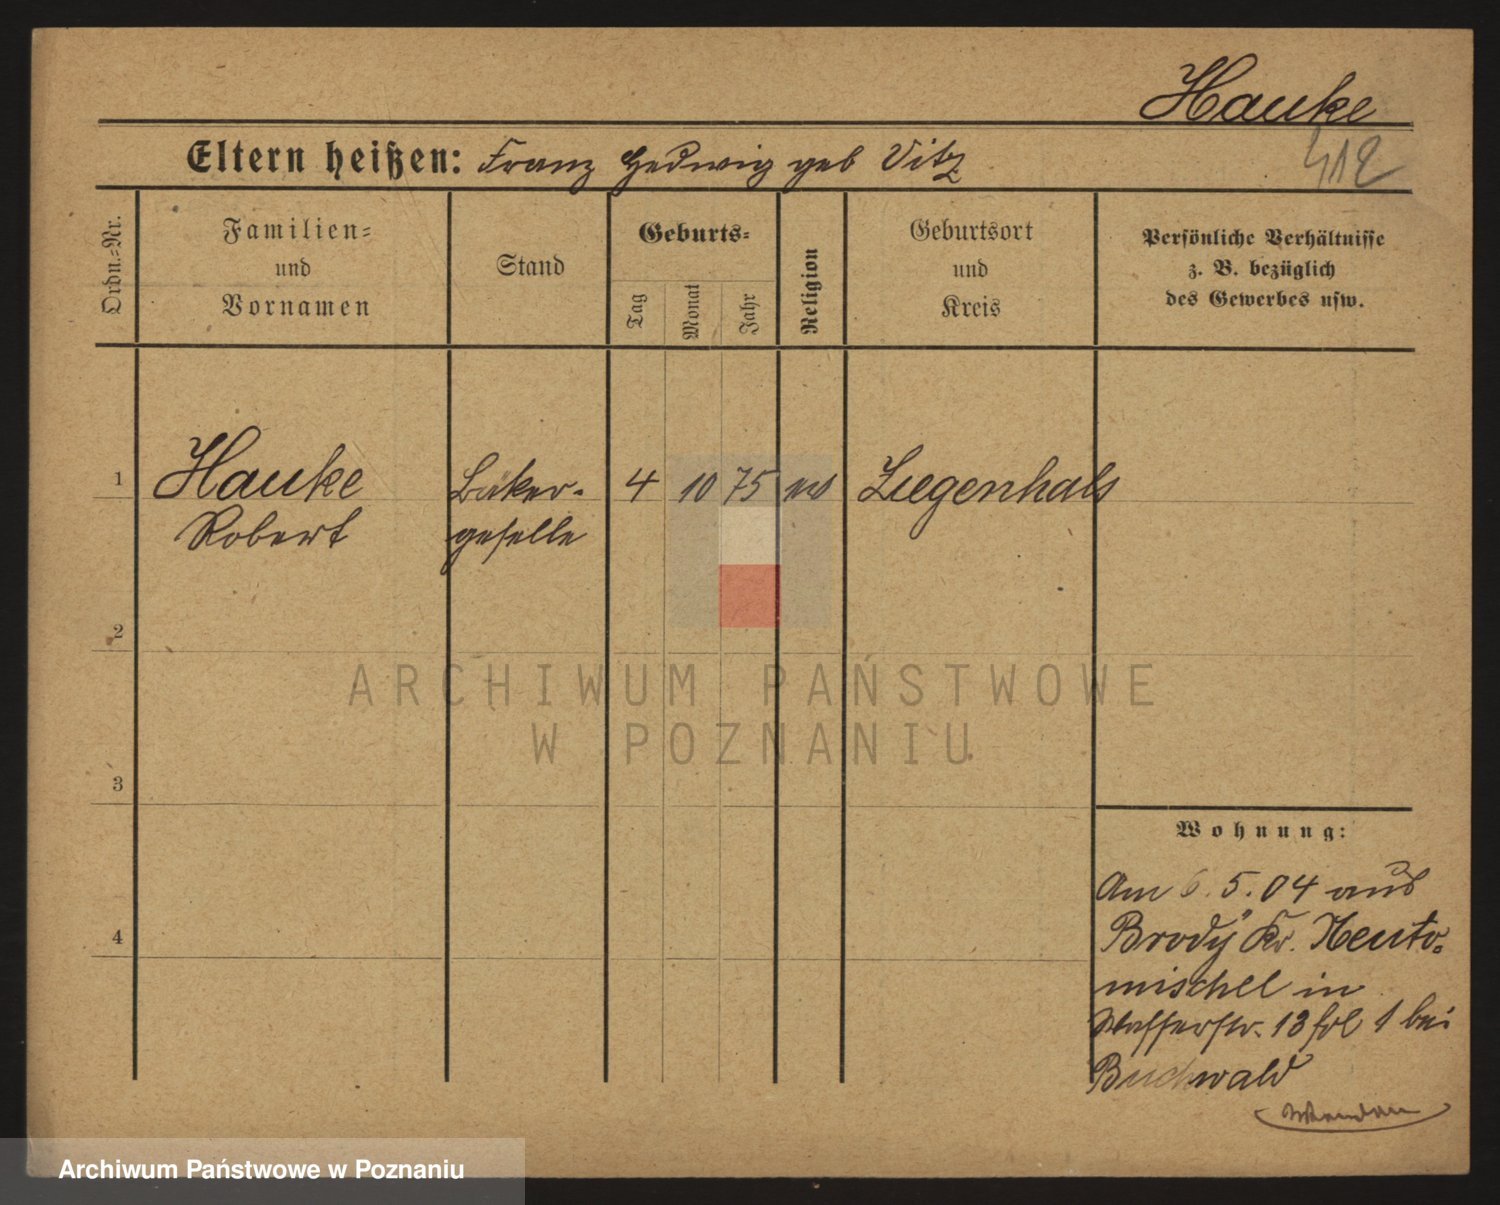 Hauke
412
Eltern heißen: Franz Hedwig geb Vitz
Ordn.-Nr.
Familien-
und
Vornamen
Stand
Geburts-
Tag
Monat
Jahr
Religion
Geburtsort
und
Kreis
Persönliche Verhältnisse
z. B. bezüglich
des Gewerbes usw.
1
Hauke
Robert
Bäker-
geselle
4
10
75
Ziegenhals
2
3
4
Wohnung:
Am 6. 5. 04 aus
Brody Kr. Neuto-
mischel in
Wasserstr. 13 1 bei
Buchwald
ARCHIWUM PAŃSTWOWE
W POZNANIU
Archiwum Państwowe w Poznaniu